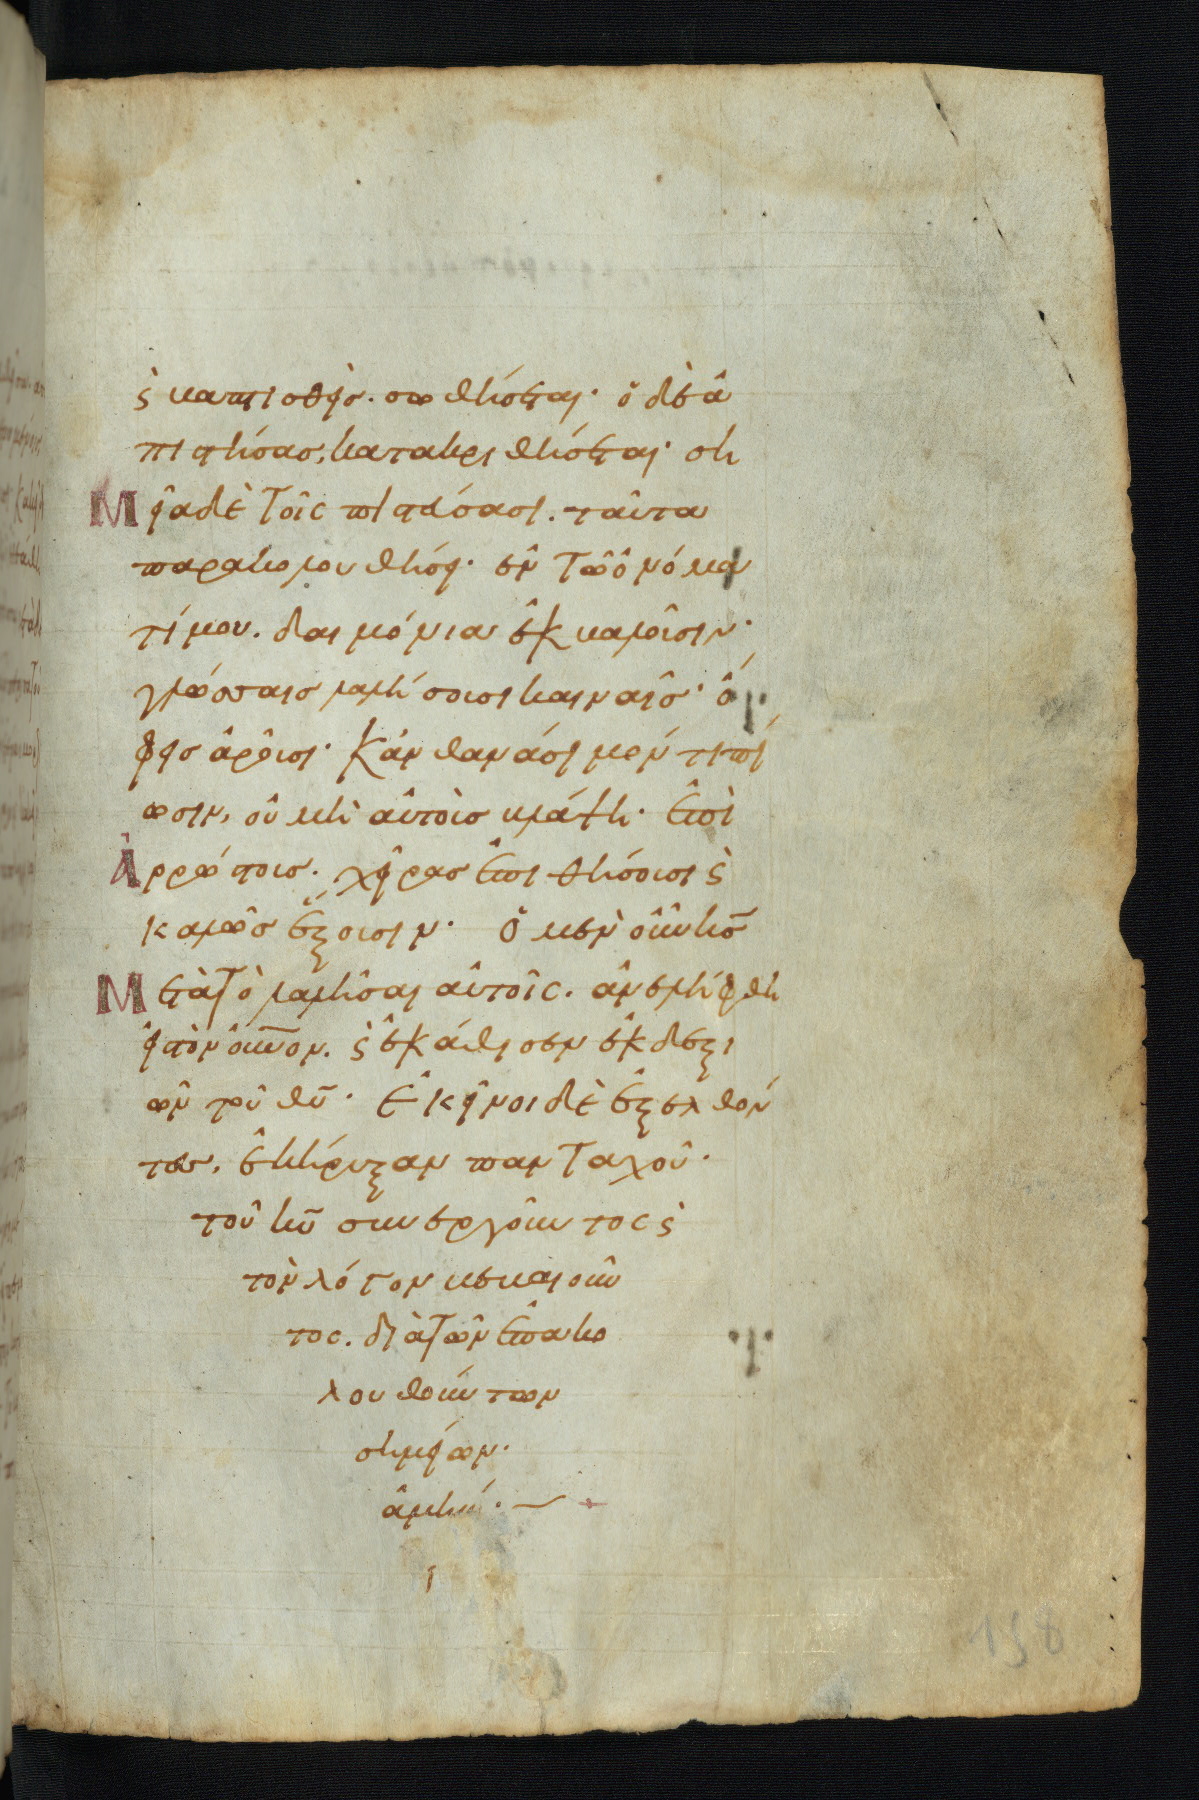 ϛ βαπτισθεὶσ. σωθήσεται· ὁ δὲ ἀ
πιστήσασ, κατακριθήσεται· ση
Μεῖα δὲ τοῖς πιστεύσασι. ταῦτα
παρακολουθήσει· ἐν τῶ ὀνόμα
τί μου. δαιμόνια ἐκβαλοῦσιν·
γλώσσαισ λαλήσουσι καιναῖσ· ὄ
φεισ ἀροῦσι· κἂν θανάσιμόν τι πί
ωσιν, οὐ μὴ αὐτοὺσ βλάψη· ἐπὶ
Ἀρρώστουσ. χεῖρασ ἐπιθήσουσι ϛ
καλῶσ ἕξουσιν· Ὁ μὲν οὖν κσ̅
Μετὰ τὸ λαλῆσαι αὐτοῖς. ἀνελήφθη
εἰς τὸν οὐ̅νον. ϛ ἐκάθισεν ἐκ δεξι
ῶν τοῦ θυ̅· Ἐκεῖνοι δὲ ἐξελθόν
τεσ, ἐκήρυξαν πανταχοῦ·
τοῦ κυ̅ συνεργοῦντος ϛ
τὸν λόγον βεβαιοῦν
τος. διὰ τῶν ἐπακο
λουθούντων
σημείων·
ἀμήν·
138